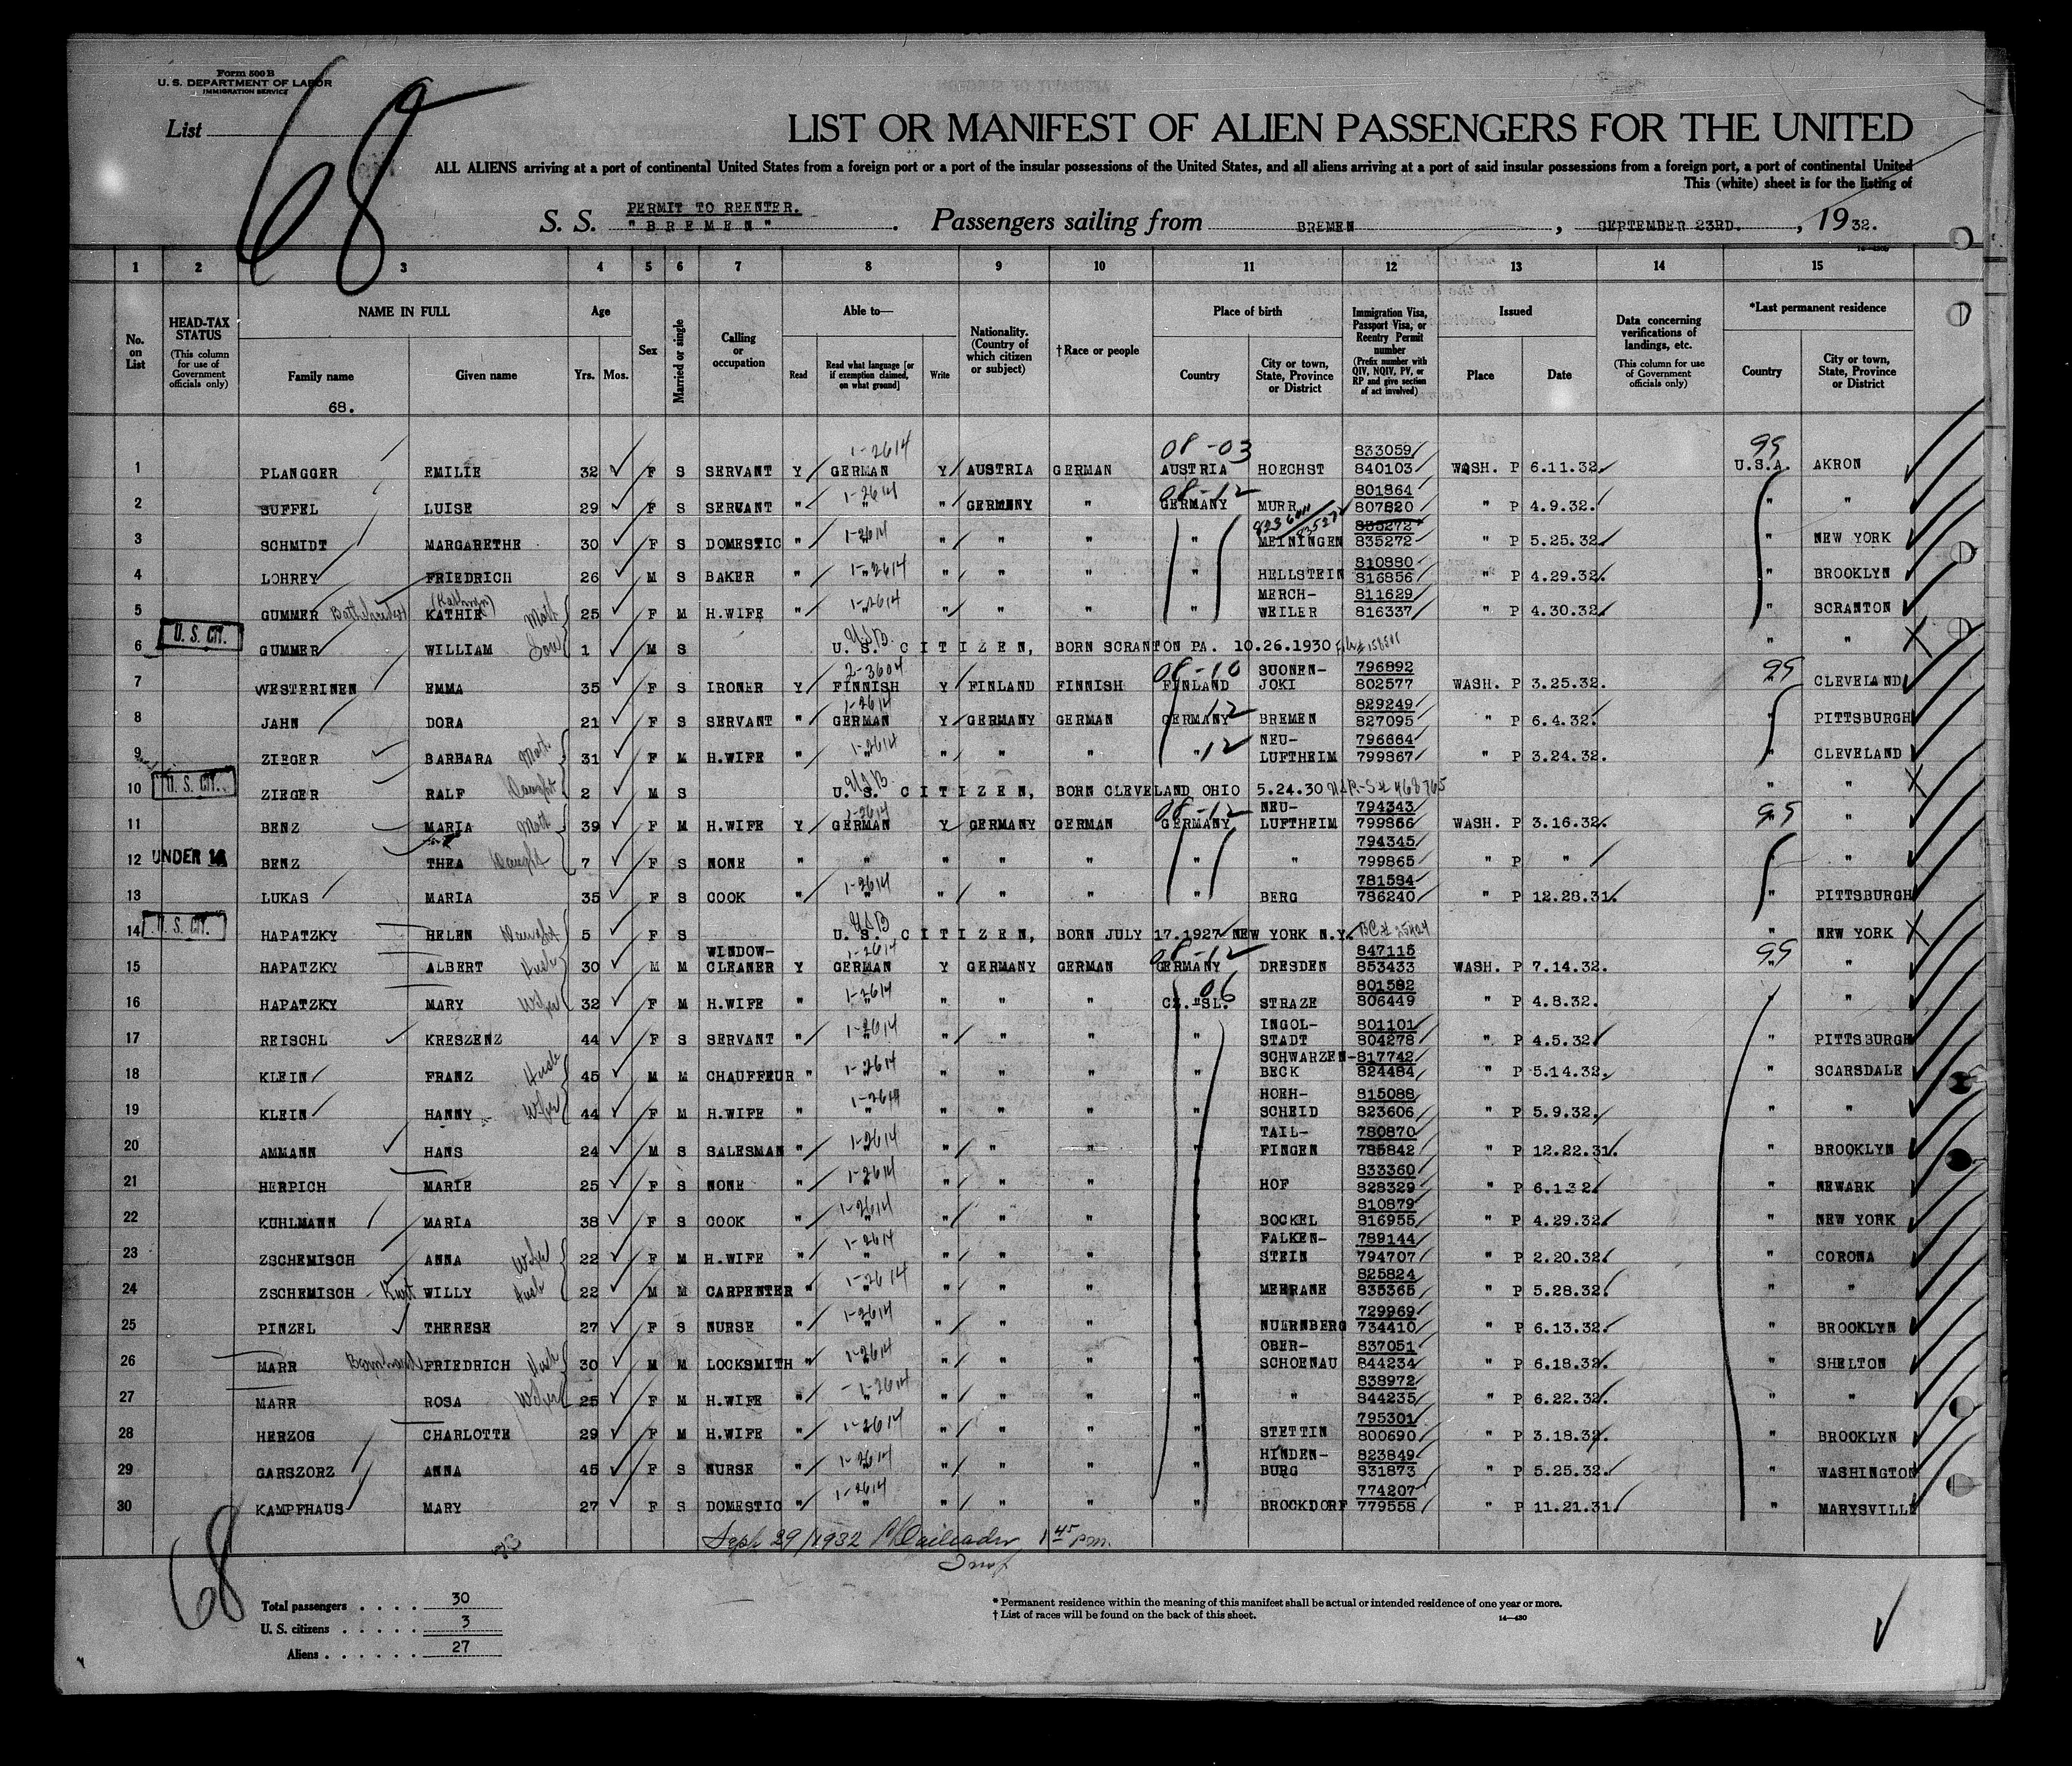 Form 500 B
U. S. DEPARTMENT OF LABOR
IMMIGRATION SERVICE
List
68
LIST OR MANIFEST OF ALIEN PASSENGERS FOR THE UNITED
ALL ALIENS arriving at a port of continental United States from a foreign port or a port of the insular possessions of the United States, and all aliens arriving at a port of said insular possessions from a foreign port, a port of continental United
This (white) sheet is for the listing of
PERMIT TO REENTER.
S. S. "BREMEN". Passengers sailing from BREMEN, SEPTEMBER 23RD., 1932.
1 2 3 4 5 6 7 8 9 10 11 12 13 14 15
No. on List
HEAD-TAX STATUS (This column for use of Government officials only)
NAME IN FULL
Family name
Given name
68.
Age
Yrs. Mos.
Sex
Married or single
Calling or occupation
Able to—
Read
Read what language [or if exemption claimed, on what ground]
Write
Nationality. (Country of which citizen or subject)
†Race or people
Place of birth
Country
City or town, State, Province or District
Immigration Visa, Passport Visa, or Reentry Permit number (Prefix number with QIV, NQIV, PV, or RP and give section of act involved)
Issued
Place
Date
Data concerning verifications of landings, etc. (This column for use of Government officials only)
*Last permanent residence
Country
City or town, State, Province or District
1-2614 08-03 833059 99
1 PLANGGER EMILIE 32 F S SERVANT Y GERMAN Y AUSTRIA GERMAN AUSTRIA HOECHST 840103 WASH. P 6.11.32. U.S.A. AKRON
1-2614 08-12 801864
2 SUFFEL LUISE 29 F S SERVANT " " " GERMANY " GERMANY MURR 807820 " P 4.9.32. " "
1-2614 835272
3 SCHMIDT MARGARETHE 30 F S DOMESTIC " " " " " " MEININGEN 835272 " P 5.25.32. " NEW YORK
1-2614 810880
4 LOHREY FRIEDRICH 26 M S BAKER " " " " " " HELLSTEIN 816856 " P 4.29.32. " BROOKLYN
(Kathryn) Moth 1-2614 MERCH- 811629
5 GUMMER KATHIE 25 F M H.WIFE " " " " " " WEILER 816337 " P 4.30.32. " SCRANTON
U. S. CIT. USB
6 GUMMER WILLIAM Son 1 M S U. S. CITIZEN, BORN SCRANTON PA. 10.26.1930 " "
2-3604 08-10 SUONEN- 796892 99
7 WESTERINEN EMMA 35 F S IRONER Y FINNISH Y FINLAND FINNISH FINLAND JOKI 802577 WASH. P 3.25.32. " CLEVELAND
1-2614 12 829249
8 JAHN DORA 21 F S SERVANT " GERMAN Y GERMANY GERMAN GERMANY BREMEN 827095 " P 6.4.32. " PITTSBURGH
1-2614 12 NEU- 796664
9 ZIEGER BARBARA Moth. 31 F M H.WIFE " " " " " " LUFTHEIM 799867 " P 3.24.32. " CLEVELAND
U. S. CIT. USB
10 ZIEGER RALF Daught 2 M S U. S. CITIZEN, BORN CLEVELAND OHIO 5.24.30 " "
1-2614 08-12 NEU- 794343 99
11 BENZ MARIA Moth 39 F M H.WIFE Y GERMAN Y GERMANY GERMAN GERMANY LUFTHEIM 799866 WASH. P 3.16.32. " "
794345
UNDER 16 12 BENZ THEA Daught 7 F S NONE " " " " " " " 799865 " P " " "
1-2614 781584
13 LUKAS MARIA 35 F S COOK " " " " " " BERG 786240 " P 12.28.31. " PITTSBURGH
U. S. CIT. USB
14 HAPATZKY HELEN Daught 5 F S U. S. CITIZEN, BORN JULY 17.1927 NEW YORK N.Y. " NEW YORK
WINDOW- 1-2614 08-12 847115 99
15 HAPATZKY ALBERT Husb 30 M M CLEANER Y GERMAN Y GERMANY GERMAN GERMANY DRESDEN 853433 WASH. P 7.14.32. " "
1-2614 06 801582
16 HAPATZKY MARY Wife 32 F M H.WIFE " " " " " CZ.-SL. STRAZE 806449 " P 4.8.32. " "
1-2614 INGOL- 801101
17 REISCHL KRESZENZ 44 F S SERVANT " " " " " " STADT 804278 " P 4.5.32 " PITTSBURGH
1-2614 SCHWARZEN- 817742
18 KLEIN FRANZ Husb 45 M M CHAUFFEUR " " " " " " BECK 824484 " P 5.14.32. " SCARSDALE
1-2614 HOEH- 815088
19 KLEIN HANNY Wife 44 F M H.WIFE " " " " " " SCHEID 823606 " P 5.9.32. " "
1-2614 TAIL- 780870
20 AMMANN HANS 24 M S SALESMAN " " " " " " FINGEN 785842 " P 12.22.31. " BROOKLYN
1-2614 833360
21 HERPICH MARIE 25 F S NONE " " " " " " HOF 828329 " P 6.1 3 2 " NEWARK
1-2614 810879
22 KUHLMANN MARIA 38 F S COOK " " " " " " BOCKEL 816955 " P 4.29.32. " NEW YORK
1-2614 FALKEN- 789144
23 ZSCHEMISCH ANNA Wife 22 F M H.WIFE " " " " " " STEIN 794707 " P 2.20.32. " CORONA
1-2614 825824
24 ZSCHEMISCH - Kurt WILLY Husb 22 M M CARPENTER " " " " " " MEERANE 835365 " P 5.28.32. " "
1-2614 729969
25 PINZEL THERESE 27 F S NURSE " " " " " " NUERNBERG 734410 " P 6.13.32. " BROOKLYN
1-2614 OBER- 837051
26 MARR Bernhard FRIEDRICH Husb 30 M M LOCKSMITH " " " " " " SCHOENAU 844234 " P 6.18.32. " SHELTON
1-2614 838972
27 MARR ROSA Wife 25 F M H.WIFE " " " " " " " 844235 " P 6.22.32. " "
1-2614 795301
28 HERZOG CHARLOTTE 29 F M H.WIFE " " " " " " STETTIN 800690 " P 3.18.32. " BROOKLYN
1-2614 HINDEN- 823849
29 GARSZORZ ANNA 45 F S NURSE " " " " " " BURG 831873 " P 5.25.32. " WASHINGTON
1-2614 774207
30 KAMPFHAUS MARY 27 F S DOMESTIC " " " " " " BROCKDORF 779558 " P 11.21.31. " MARYSVILLE
Sept 29/1932 1 45 P.m.
Insp
68
Total passengers . . . . 30
U. S. citizens . . . . . 3
Aliens . . . . . . 27
* Permanent residence within the meaning of this manifest shall be actual or intended residence of one year or more.
† List of races will be found on the back of this sheet. 14—430